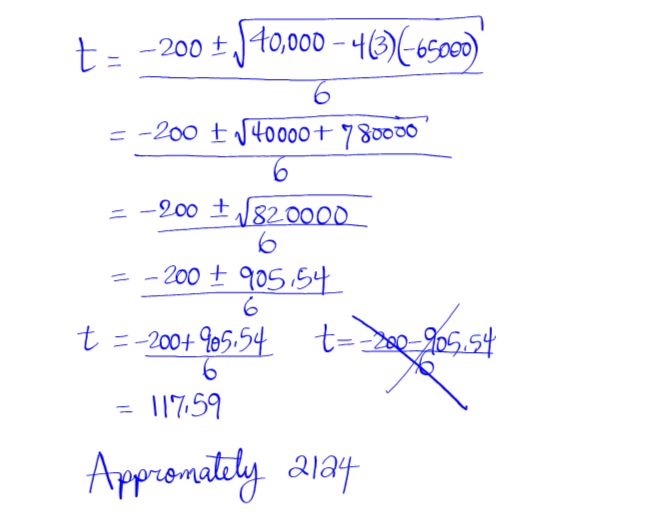 t = -200 ± √40,000 - 4(3)(-65000)
6
= -200 ± √40000 + 780000
6
= -200 ± √820000
6
= -200 ± 905.54
6
t = -200 + 905.54 t = -200 - 905.54
6 6
= 117.59
Appromately 2124